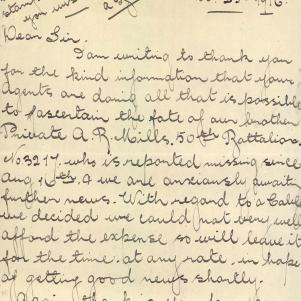 stamp
you
Dear Sir.
I am writing to thank you
for the kind information that your
Agents are doing all that is possible
to fascertain the fate of our brother
Private A. R. Mills. 50th Battalion.
No 3217, who is reported missing since
Aug 16th. & we are anxiously await
further news. With regard to a Cable
we decided we could not very well
afford the expense so will leave it
for the time, at any rate, in hope
of getting good news shortly.